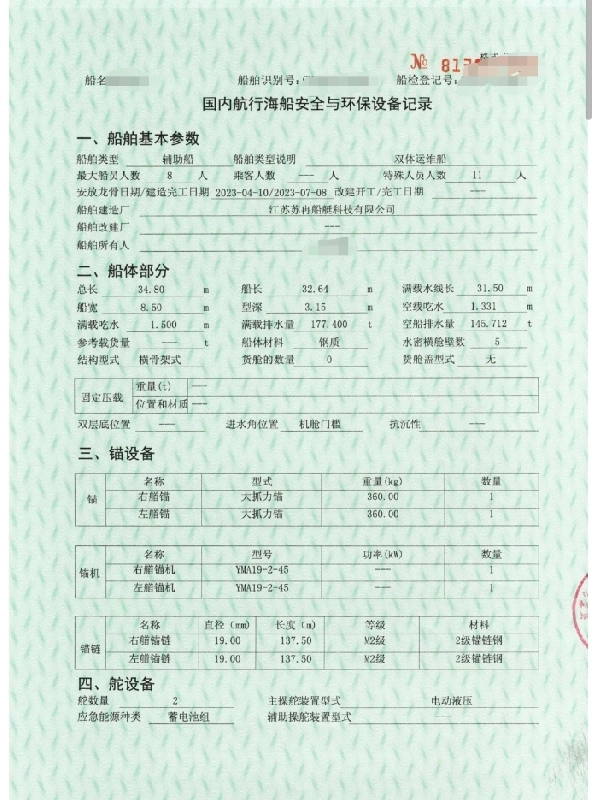 № 8172
船名
船舶识别号:
船检登记号:
国内航行海船安全与环保设备记录
一、船舶基本参数
船舶类型 辅助船 船舶类型说明 双体运维船
最大船员人数 8 人 乘客人数 --- 人 特殊人员人数 11 人
安放龙骨日期/建造完工日期 2023-04-10/2023-07-08 改建开工/完工日期 ---
船舶建造厂 江苏苏冉船艇科技有限公司
船舶改建厂 ---
船舶所有人
二、船体部分
总长 34.80 m 船长 32.64 m 满载水线长 31.50 m
船宽 8.50 m 型深 3.15 m 空载吃水 1.331 m
满载吃水 1.500 m 满载排水量 177.400 t 空船排水量 145.712 t
参考载货量 --- t 船体材料 钢质 水密横舱壁数 5
结构型式 横骨架式 货舱的数量 0 货舱盖型式 无
固定压载 重量(t) ---
位置和材质 ---
双层底位置 --- 进水角位置 机舱门槛 抗沉性 ---
三、锚设备
锚 名称 型式 重量(kg) 数量
右艏锚 大抓力锚 360.00 1
左艏锚 大抓力锚 360.00 1
锚机 名称 型号 功率(kW) 数量
右艏锚机 YMA19-2-45 --- 1
左艏锚机 YMA19-2-45 --- 1
锚链 名称 直径 (mm) 长度 (m) 等级 材料
右艏锚链 19.00 137.50 M2级 2级锚链钢
左艏锚链 19.00 137.50 M2级 2级锚链钢
四、舵设备
舵数量 2 主操舵装置型式 电动液压
应急能源种类 蓄电池组 辅助操舵装置型式 ---